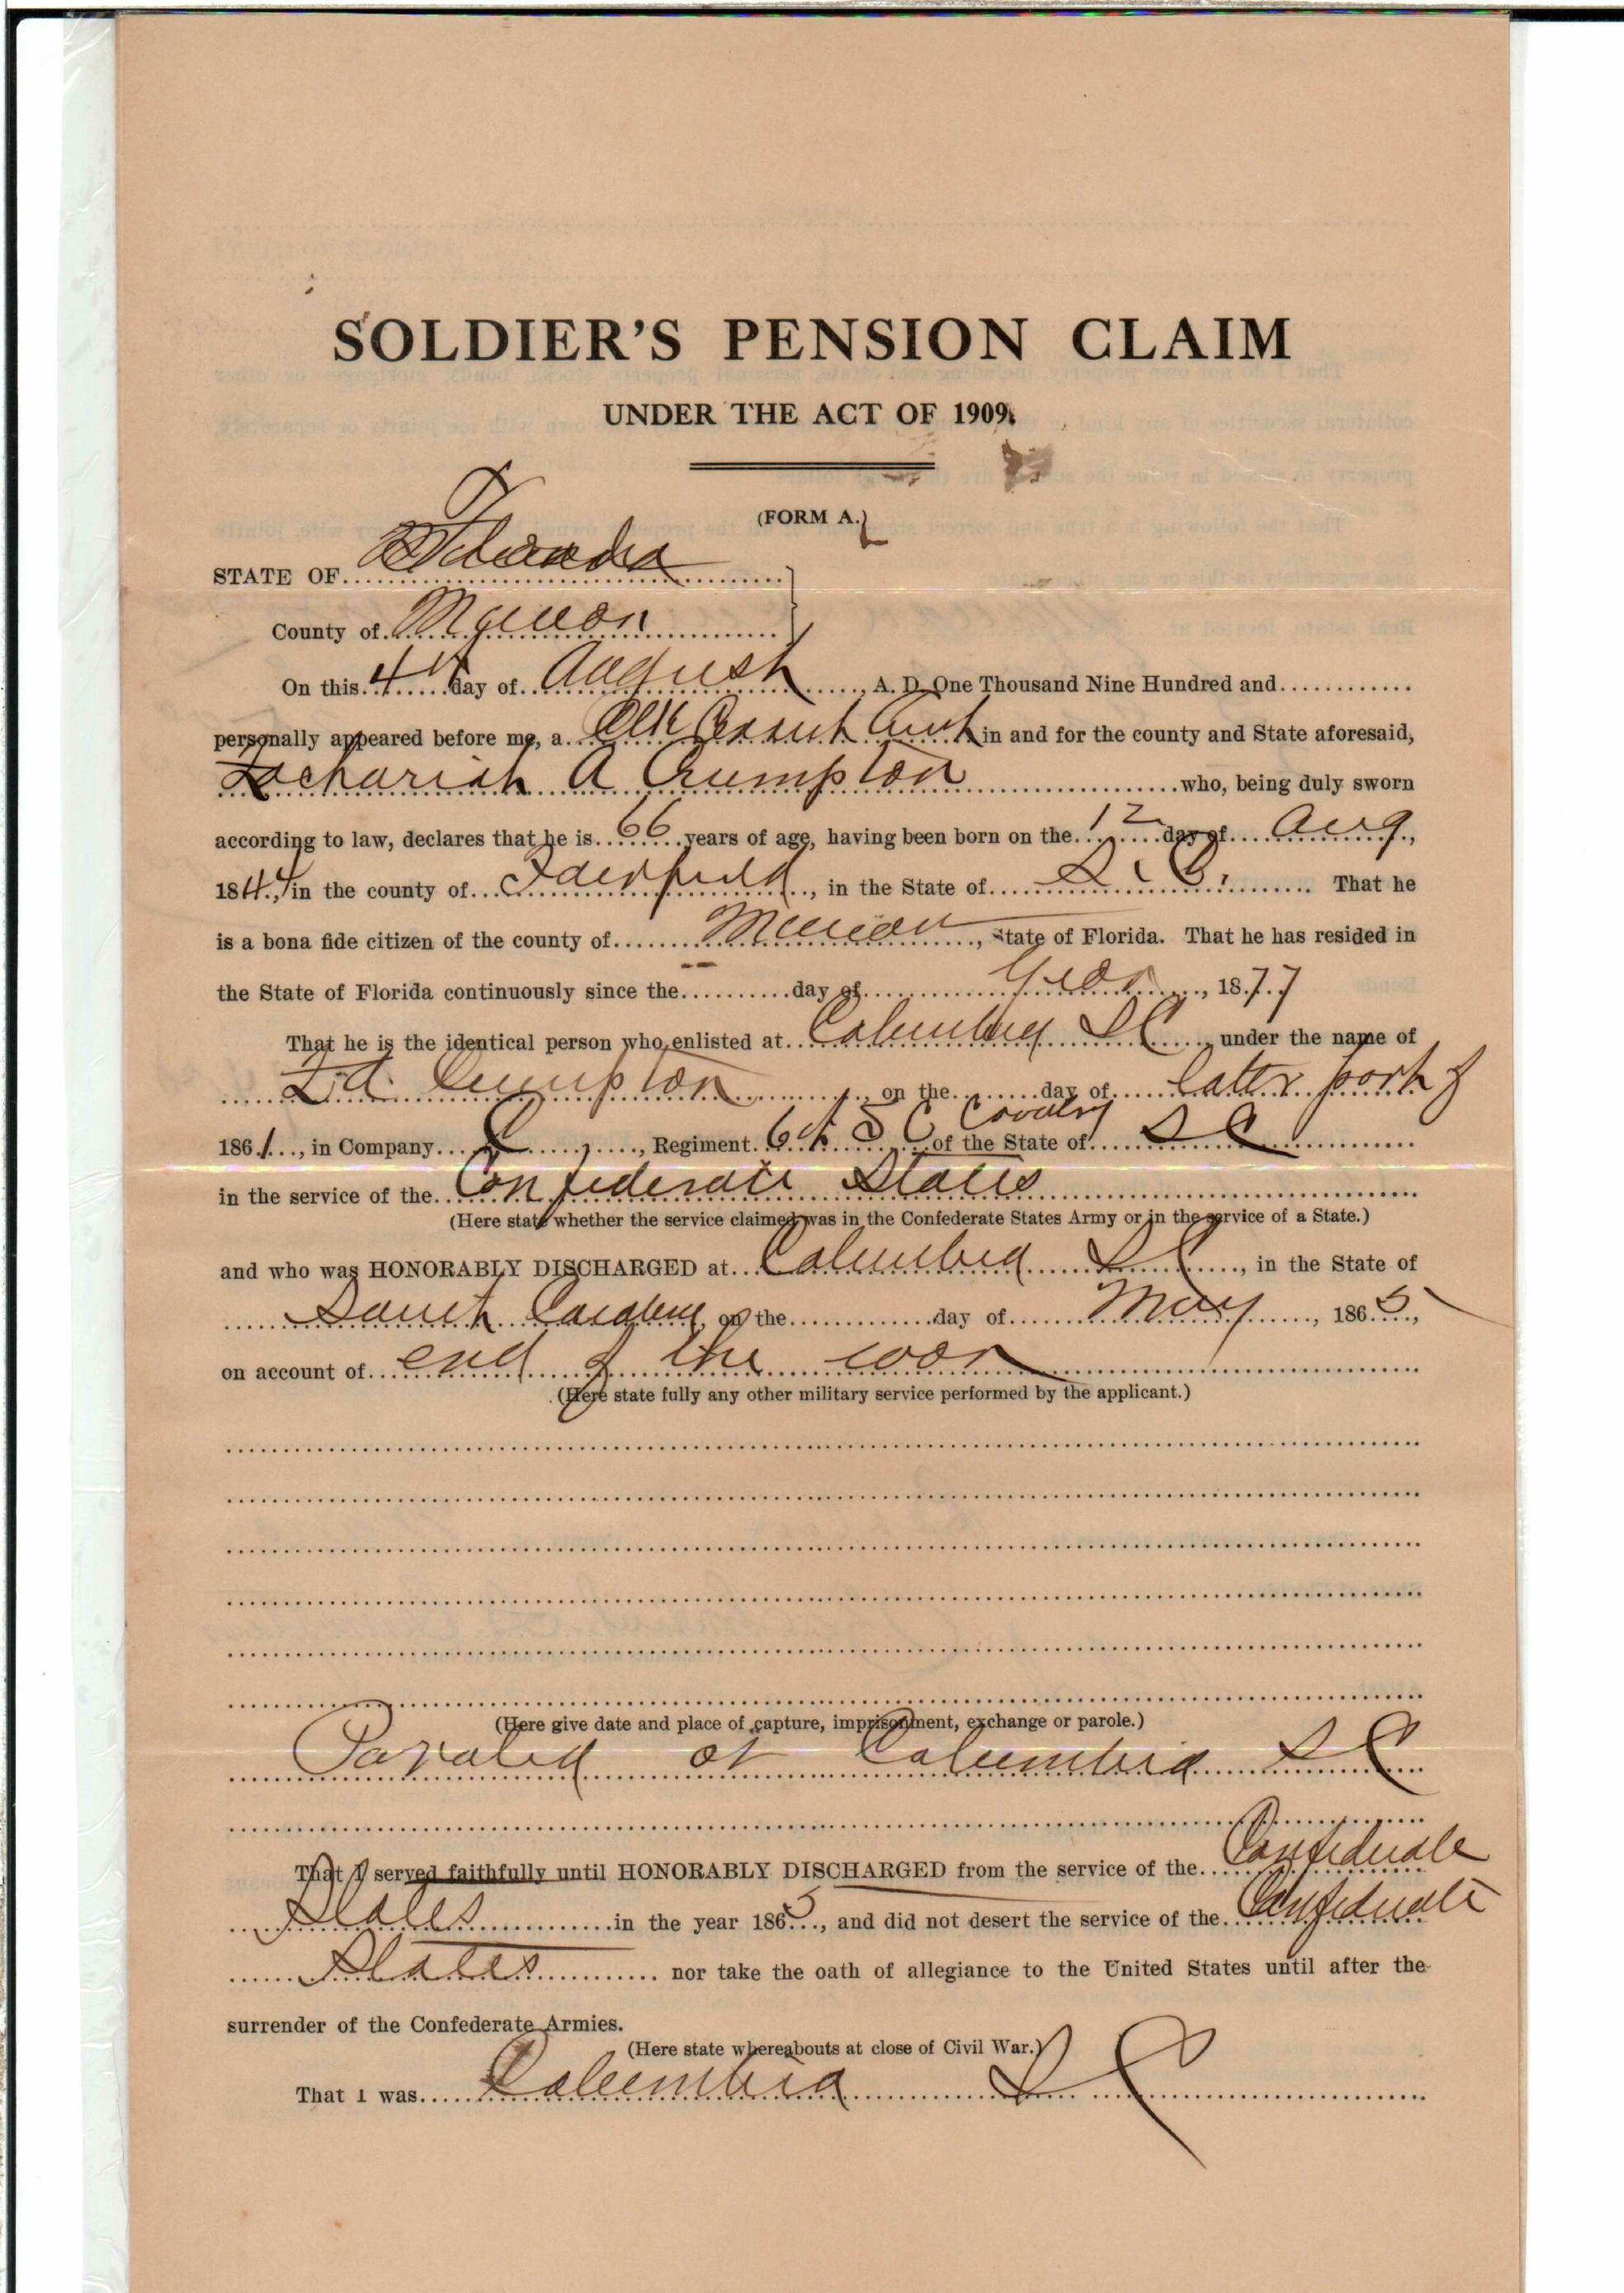 SOLDIER'S PENSION CLAIM
UNDER THE ACT OF 1909.
(FORM A.)
STATE OF Florida
County of Marion
On this 4th day of August, A. D. One Thousand Nine Hundred and
personally appeared before me, a Clk Circuit Court in and for the county and State aforesaid,
Zachariah A Crumpton who, being duly sworn
according to law, declares that he is 66 years of age, having been born on the 12 day of Aug,
1844, in the county of Edgefield, in the State of S. C. That he
is a bona fide citizen of the county of Marion, State of Florida. That he has resided in
the State of Florida continuously since the day of year, 1877
That he is the identical person who enlisted at Columbia S C, under the name of
Z. A. Crumpton, on the day of later part of
1861, in Company, Regiment 6th S C Cavalry of the State of S C
in the service of the Confederate States
(Here state whether the service claimed was in the Confederate States Army or in the service of a State.)
and who was HONORABLY DISCHARGED at Columbia S C, in the State of
South Carolina, on the day of May, 1865,
on account of end of the war
(Here state fully any other military service performed by the applicant.)
(Here give date and place of capture, imprisonment, exchange or parole.)
Paroled at Columbia S C
That I served faithfully until HONORABLY DISCHARGED from the service of the Confederate
States in the year 1865, and did not desert the service of the Confederate
States nor take the oath of allegiance to the United States until after the
surrender of the Confederate Armies.
(Here state whereabouts at close of Civil War.)
That I was Columbia S C